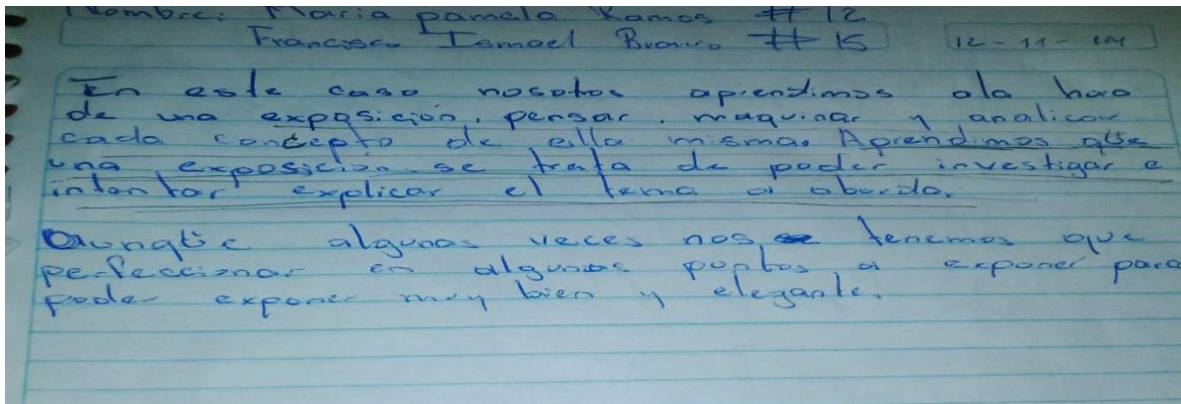 Nombre: Maria pamela Ramos # 12
Francisco Ismael # 15 12-11-
En este caso nosotos aprendimos ala hora
de una exposicion, pensar, maquinar y analicar
cada concepto de ella misma. Aprendimos que
una exposicion se trata de poder investigar e
intentar explicar el tema a abordo.
Aunque algunas veces nos tenemos que
perfeccionar en algunos puntos a exponer para
poder exponer muy bien y elegante.